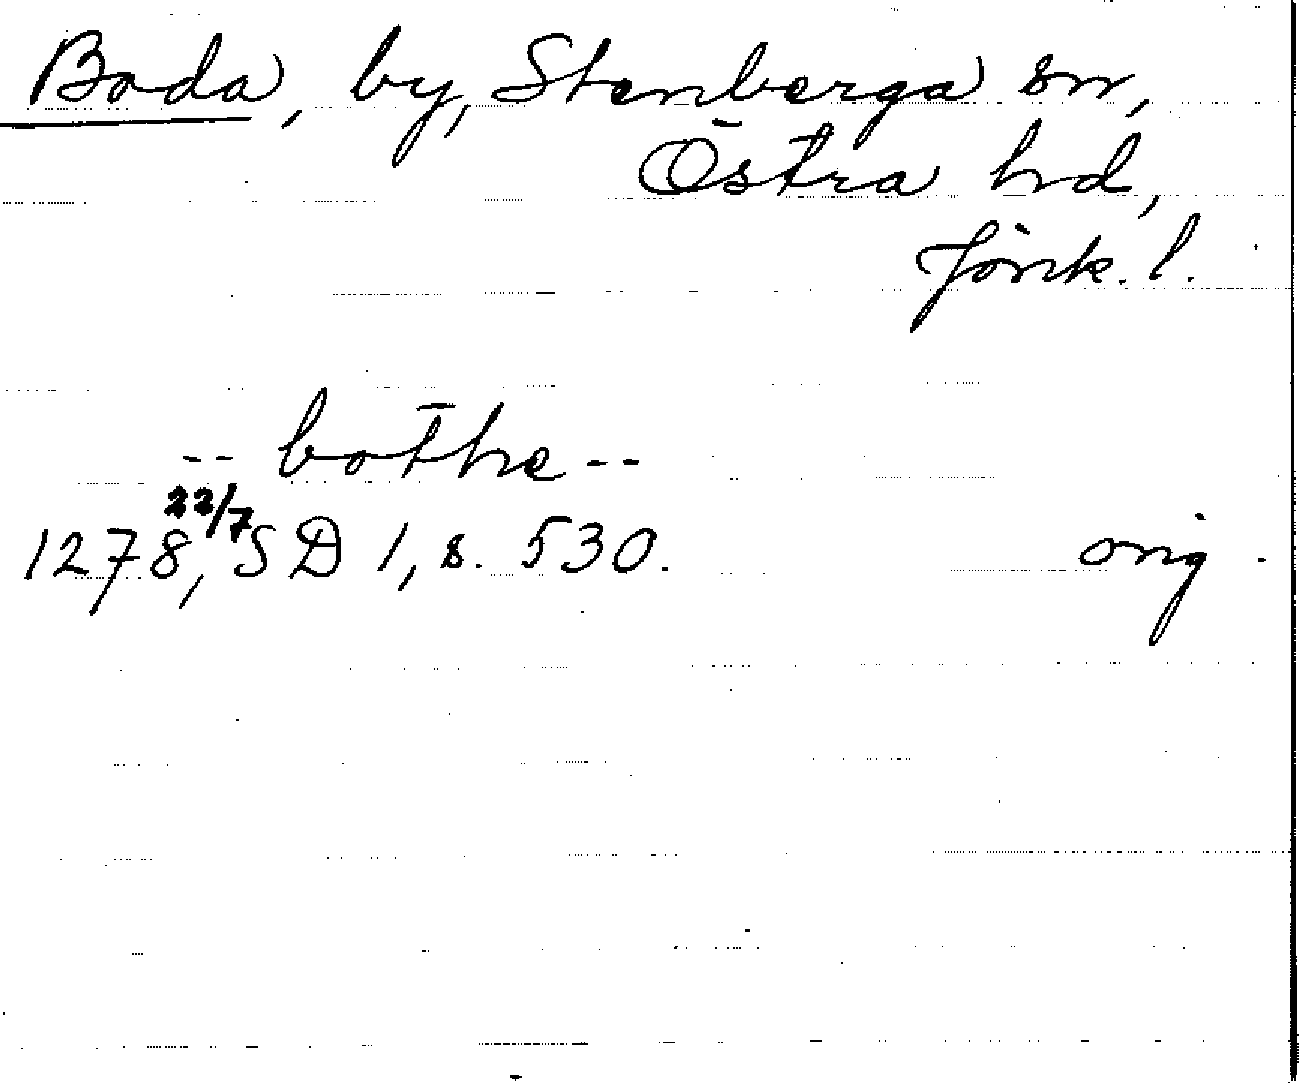 Boda, by, Stenberga sn,
Östra hd,
Jönk. l.
-- bothe --
1278, 22/7 SD 1, s. 530. orig.